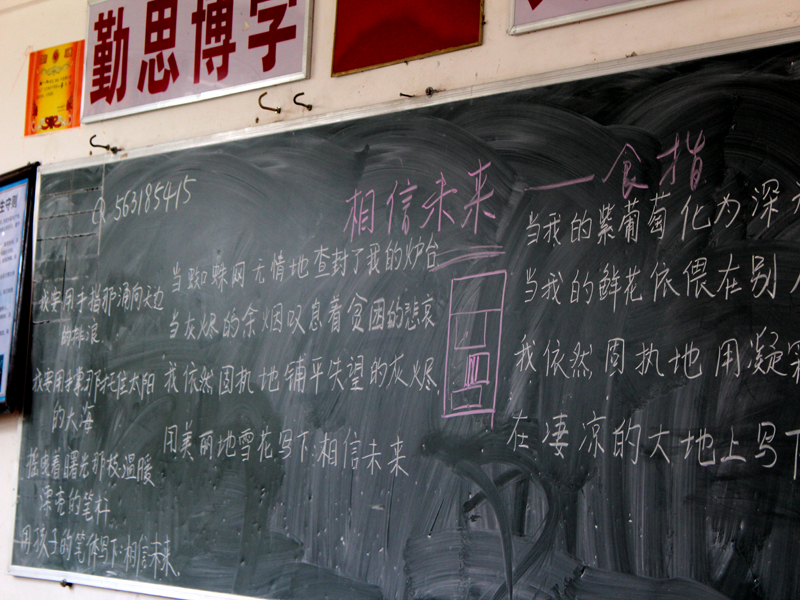 勤思博学
生守则
Q563185415
相信未来 —— 食指
我要用手指那涌向天边
的排浪
我要用手掌那托住太阳
的大海
摇曳着曙光那枝温暖
漂亮的笔杆
用孩子的笔体写下:相信未来
当蜘蛛网无情地查封了我的炉台
当灰烬的余烟叹息着贫困的悲哀
我依然固执地铺平失望的灰烬
用美丽地雪花写下:相信未来
当我的紫葡萄化为深
当我的鲜花依偎在别人
我依然固执地用凝
在凄凉的大地上写下